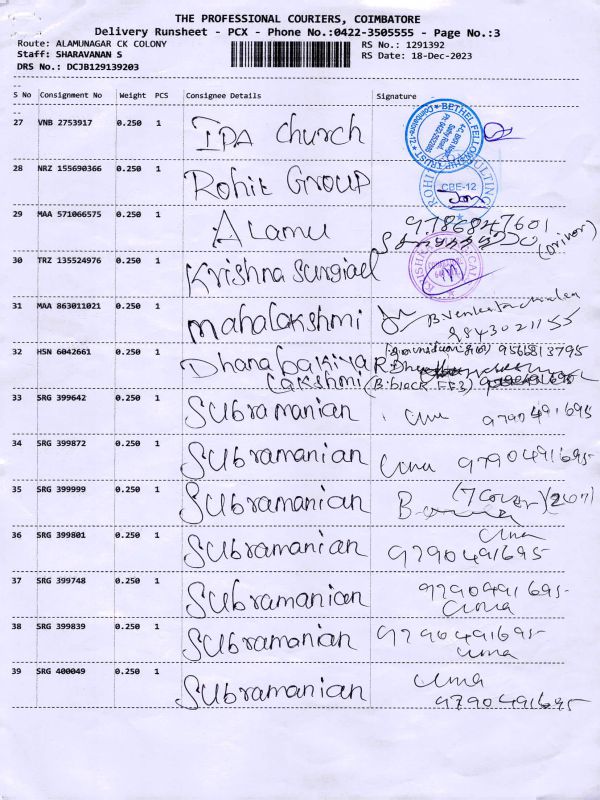 THE PROFESSIONAL COURIERS, COIMBATORE
Delivery Runsheet - PCX - Phone No.:0422-3505555 - Page No.:3
Route: ALAMUNAGAR CK COLONY RS No.: 1291392
Staff: SHARAVANAN S RS Date: 18-Dec-2023
DRS No.: DCJB129139203
S No Consignment No Weight PCS Consignee Details Signature
27 VNB 2753917 0.250 1 IPA church
BETHEL FELLOWSHIP TRUST
Coimbatore-12
28 NRZ 155690366 0.250 1 Rohit Group
CBE-12
29 MAA 571066575 0.250 1 Alamu 9786847601
(Driver)
30 TRZ 135524976 0.250 1 Krishna Surgiael
31 MAA 863011021 0.250 1 mahalakshmi B.Venkatachalam
9843021155
32 HSN 6042661 0.250 1 Dhanabakiya 9566813795
Lakshmi (B.block FF3)
33 SRG 399642 0.250 1 Subramanian Uma 9790491695
34 SRG 399872 0.250 1 Subramanian Uma 9790491695
35 SRG 399999 0.250 1 Subramanian (7 cover)
36 SRG 399801 0.250 1 Subramanian Uma
9790491695
37 SRG 399748 0.250 1 Subramanian 9790491695
Uma
38 SRG 399839 0.250 1 Subramanian 9790491695
Uma
39 SRG 400049 0.250 1 Subramanian Uma
9790491695